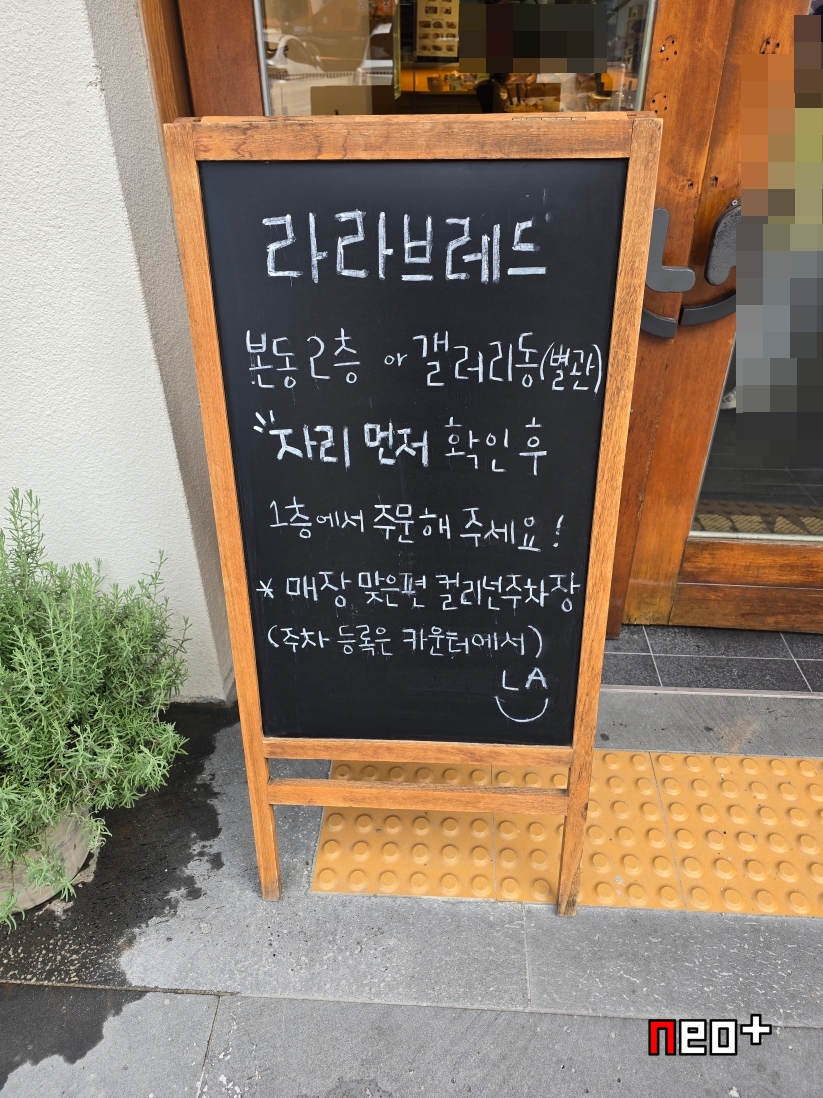 라라브레드
본동 2층 or 갤러리동(별관)
자리 먼저 확인 후
1층에서 주문해 주세요!
* 매장 맞은편 컬리넌주차장
(주차 등록은 카운터에서)
LA
neo+